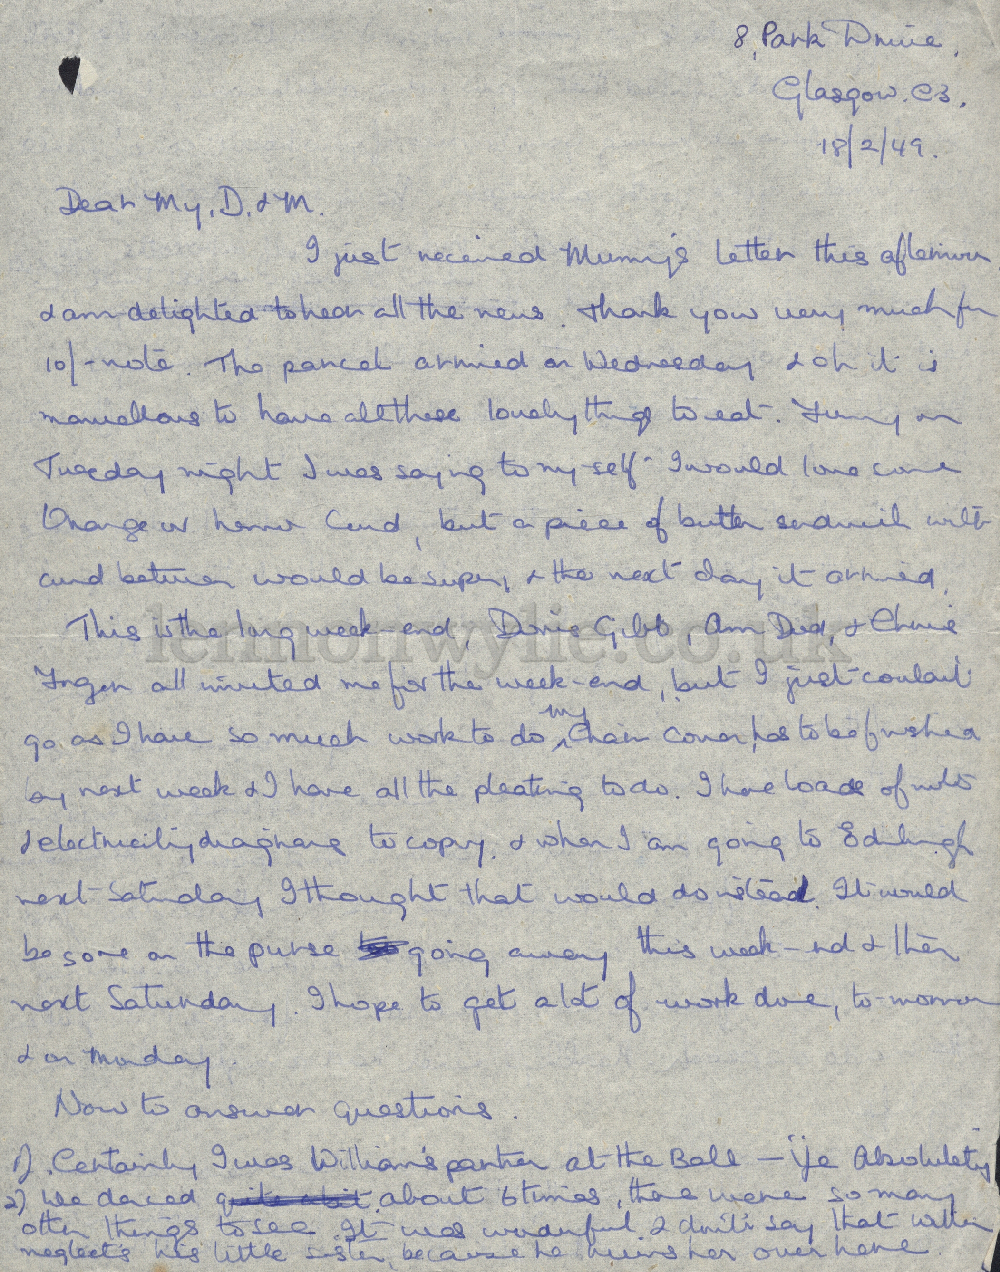 8, Park Drive,
Glasgow. C3.
18/2/49.
Dear My, D. & M.
I just received Mummy's letter this afternoon
& am delighted to hear all the news. Thank you very much for
10/- note. The parcel arrived on Wednesday & oh it is
marvellous to have all these lovely things to eat. Funny on
Tuesday night I was saying to my self - I would love some
Orange or lemon Curd, but a piece of butter sandwich with
curd between would be super, & the next day it arrived.
This is the long week-end, Gibb, Ann & Chrissie
all invited me for the week-end, but I just couldn't
go as I have so much work to do, my Chair Cover, has to be finished
by next week & I have all the pleating to do. I have loads of notes
& electricity diagrams to copy, & when I am going to Edinburgh
next Saturday I thought that would do instead. It would
be sore on the purse going away this week-end & then
next Saturday. I hope to get a lot of work done, to-morrow
& on Monday.
Now to answer questions.
1). Certainly I was William's partner at the Ball — Absolutely
2) We danced quite a bit about 6 times, there were so many
other things to see. It was wonderful & don't say that William
neglects his little sister, because he runs her over here.
lennonwylie.co.uk